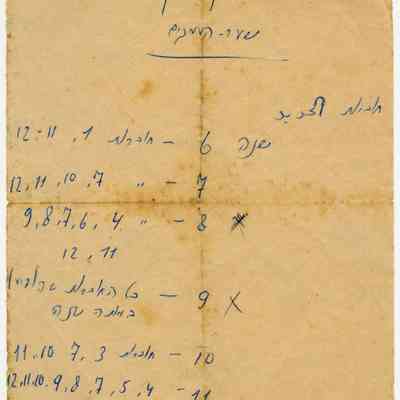 שער-העמקים
חוברות
שנה 6 – חוברות 1, 11-12
7 – " 7, 10, 11, 12
8 – " 4, 6, 7, 8, 9
11, 12
9 – כל החוברות
באותה שנה
10 – חוברות 3, 7, 10, 11
11 – 4, 5, 7, 8, 9, 10, 11, 12